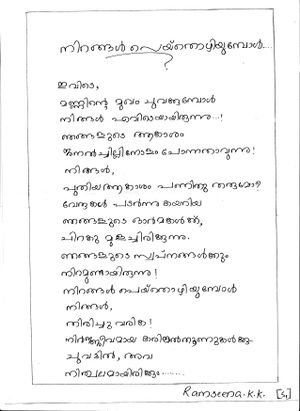 നിറങ്ങൾ പെയ്തൊഴിയുമ്പോൾ....
?
ഇവിടെ,
മണ്ണിന്റെ മുഖം ചുവന്നപ്പോൾ
നിങ്ങൾ എവിടെയായിരുന്നു...!
ഞങ്ങളുടെ ആകാശം
ജനൽചില്ലിനോളം പോന്നതാവുന്നു!
നിങ്ങൾ,
പുതിയ ആകാശം പണിതു തരുമോ?
വേരുകൾ പടർന്നു കയറിയ
ഞങ്ങളുടെ ഓർമകൾക്ക്,
ചിറകു മുളച്ചിരിക്കുന്നു.
ഞങ്ങളുടെ സ്വപ്നങ്ങൾക്കും
നിറമുണ്ടായിരുന്നു!
നിറങ്ങൾ പെയ്തൊഴിയുമ്പോൾ
നിങ്ങൾ,
തിരിച്ചു വരിക!
നിർജ്ജീവമായ
ചുവരിൻ, അവ
നിശ്ചലമായിരിക്കും........
Ramseena.k.k.